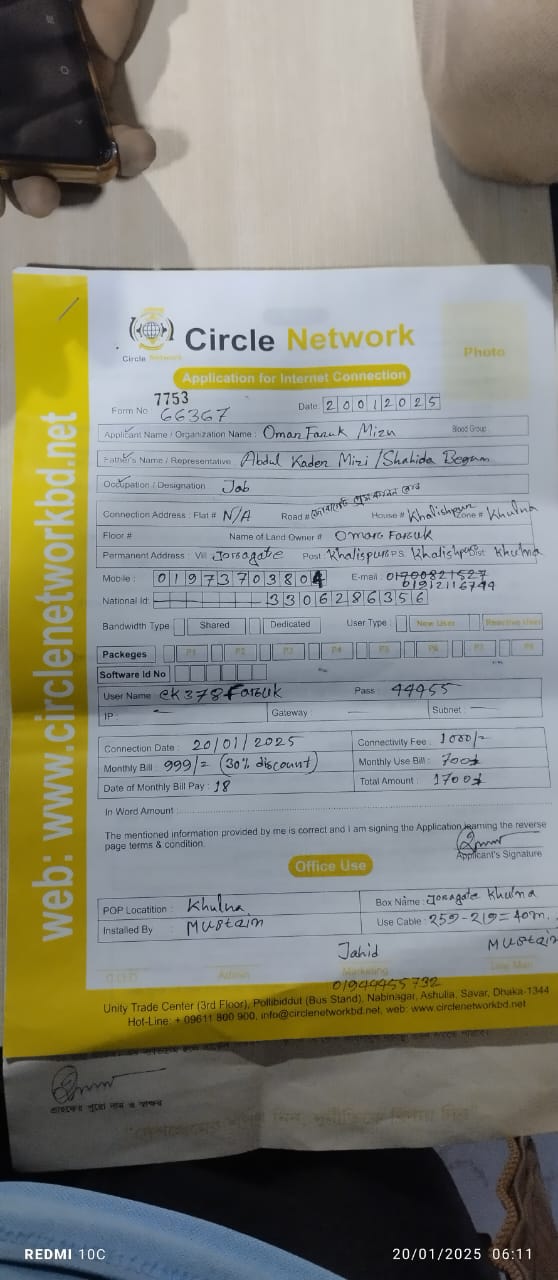 web: www.circlenetworkbd.net
Circle Network
Circle Network
Photo
Application for Internet Connection
7753
Form No 66367 Date: 20012025
Applicant Name / Organization Name : Omar Faruk Mizu Blood Group
Father's Name / Representative Abdul Kader Mizi / Shahida Begum
Occupation / Designation : Job
Connection Address : Flat # N/A Road # House # Khalishpur Zone # Khulna
Floor # Name of Land Owner # Omar Faruk
Permanent Address : Vill Joragate Post Khalispur P.S Khalishpur Dist Khulna
Mobile : 01973703804 E-mail : 01700821527
01912116749
National Id: 3306286356
Bandwidth Type Shared Dedicated User Type : New User Reactive User
Packeges P1 P2 P3 P4 P5 P6 P7 P8
Software Id No
User Name ck378Faruk Pass : 44955
IP : — Gateway : — Subnet : —
Connection Date : 20/01/2025 Connectivity Fee : 1000/-
Monthly Bill : 999/= (30% discount) Monthly Use Bill : 700
Date of Monthly Bill Pay : 18 Total Amount : 1700
In Word Amount :
The mentioned information provided by me is correct and I am signing the Application learning the reverse
page terms & condition.
Applicant's Signature
Office Use
POP Locatition : Khulna Box Name : Joragate Khulna
Installed By Mustain Use Cable : 259-219=40m.
Jahid Mustain
Admin Marketing Line Man
01944455732
Unity Trade Center (3rd Floor), Pollibiddut (Bus Stand), Nabinagar, Ashulia, Savar, Dhaka-1344
Hot-Line: + 09611 800 900, info@circlenetworkbd.net, web: www.circlenetworkbd.net
গ্রাহকের পুরো নাম ও স্বাক্ষর
REDMI 10C 20/01/2025 06:11